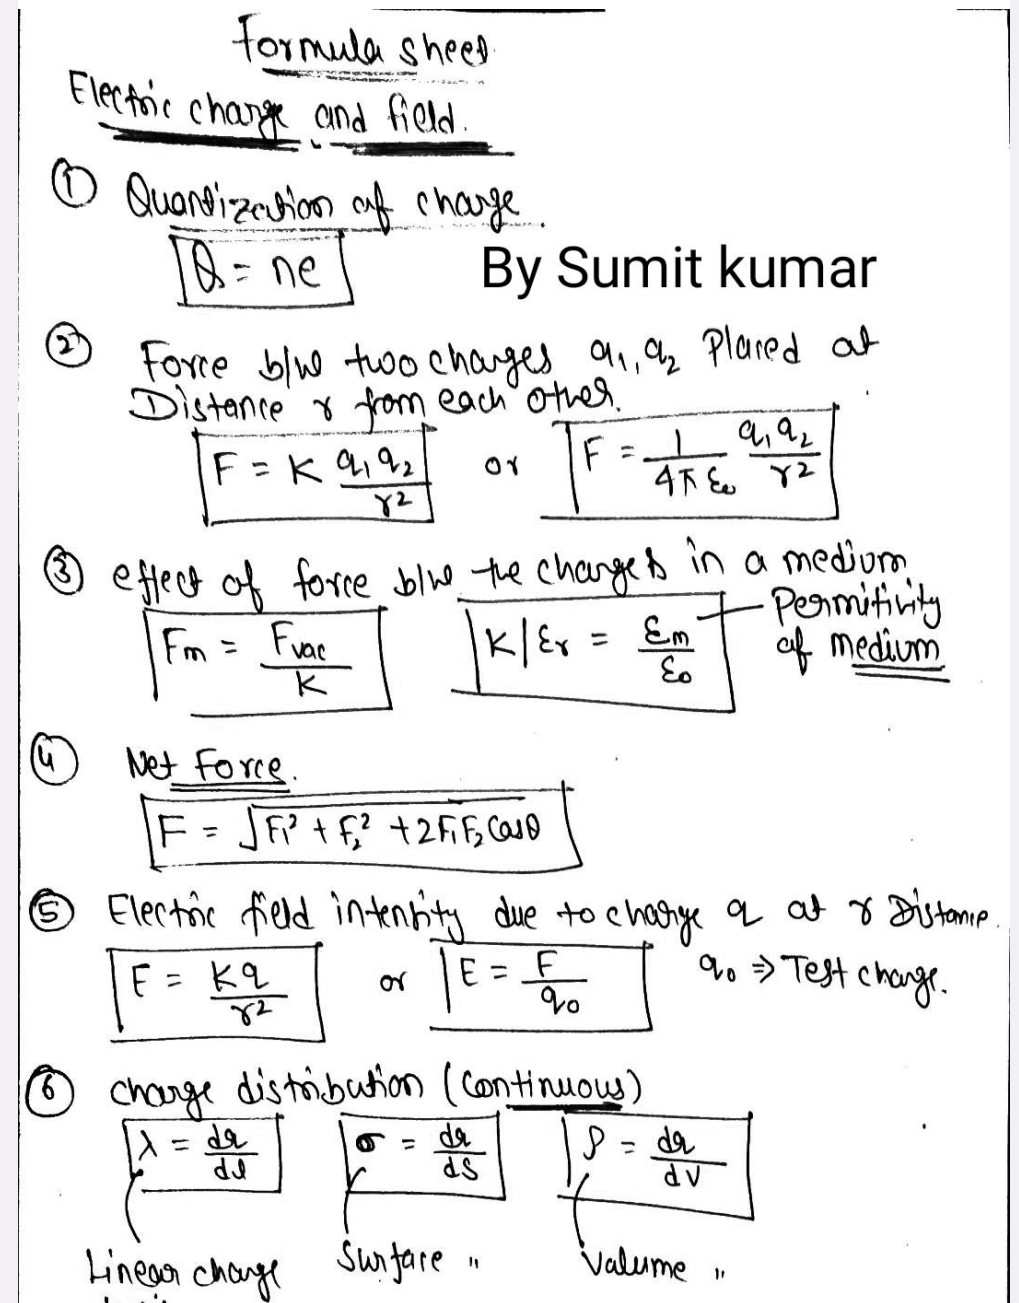 Formula sheet
Electric charge and field.
① Quantization of charge.
Q = ne
By Sumit kumar
② Force b/w two charges q₁, q₂ Placed at
Distance r from each other.
F = K q₁q₂/r² or F = 1/4πε₀ q₁q₂/r²
③ effect of force b/w the charges in a medium
Fm = Fvac/K K/εr = εm/ε₀ Permitivity
of medium
④ Net Force.
F = √F₁² + F₂² + 2F₁F₂ Cosθ
⑤ Electric field intensity due to charge q at r Distance.
E = Kq/r² or E = F/q₀ q₀ ⇒ Test charge.
⑥ charge distribution (Continuous)
λ = dq/dl σ = dq/dS ρ = dq/dV
Linear charge Surface " Valume "